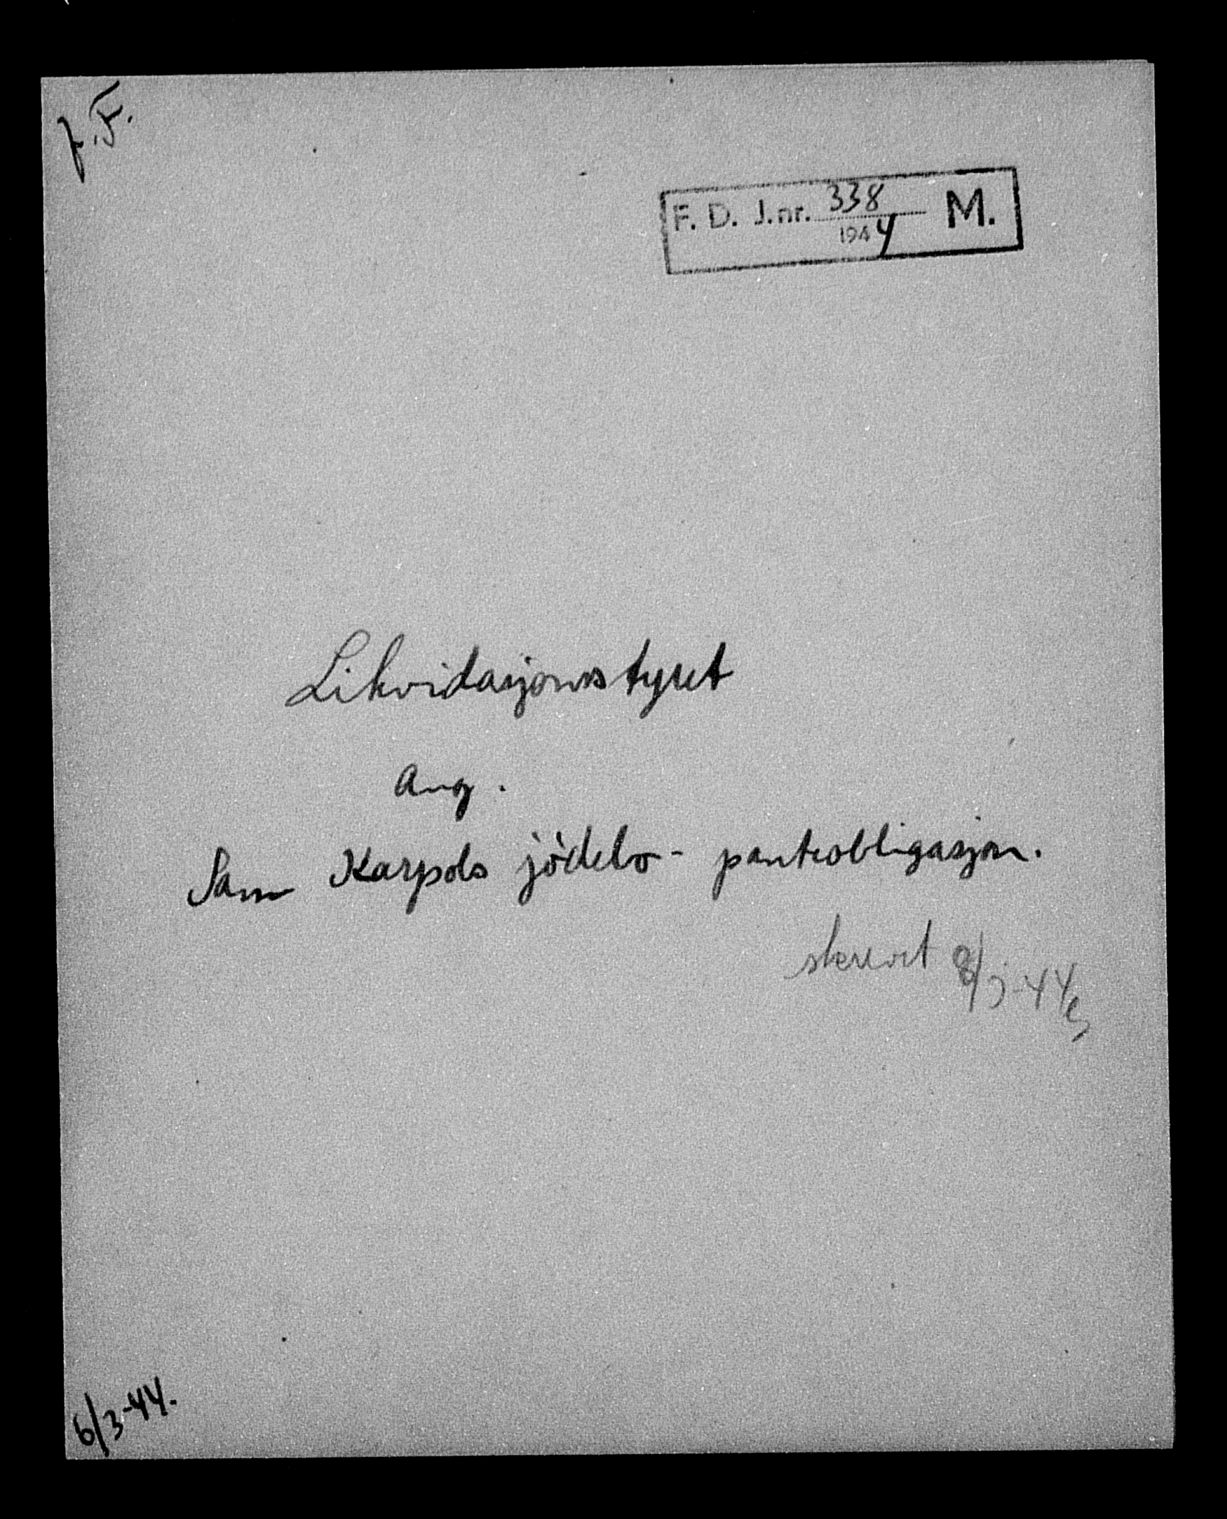 J.F.
F. D. J.nr. 338 M.
1944
Likvidasjonsstyret
ang.
Sam Karpols jödebo - panteobligasjon.
skrevet 8/3-44
6/3-44.